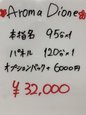 Aroma Dione
本指名 95分1
パネル 120分1
オプションパック + 6000円
¥32,000